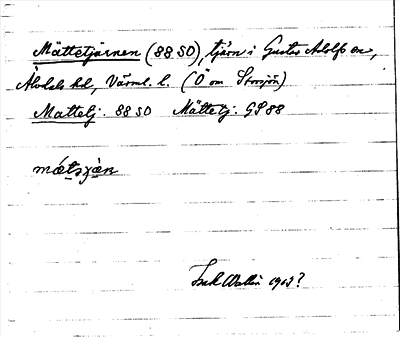 Mättetjärnen (88 SO), tjärn i Gustav Adolfs sn,
Älvdals hd, Värml. l. (Ö om Storsjön)
Mattetj. 88 SO Mättetj. GS 88
mǽtsɟæn
Isak Wallin 1913?